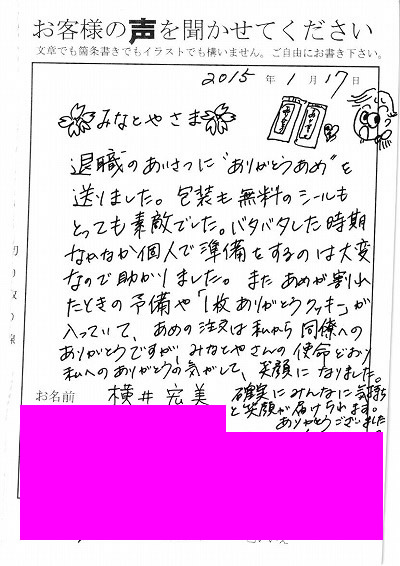 お客様の声を聞かせてください
文章でも箇条書きでもイラストでも構いません。ご自由にお書き下さい。
2015年 1月 17日
みなとやさま
退職のあいさつに"ありがとうあめ"を
送りました。包装も無料のシールも
とっても素敵でした。バタバタした時期
なかなか個人で準備をするのは大変
なので助かりました。また あめが割れ
たときの予備や「1枚ありがとうクッキー」が
入っていて、あめの注文は私から同僚への
ありがとうですが、みなとやさんの使命どおり
私へのありがとうの気がして、笑顔になりました。
確実にみんなに気持ち
と笑顔が届けられます。
ありがとうございました
お名前 横井 宏美